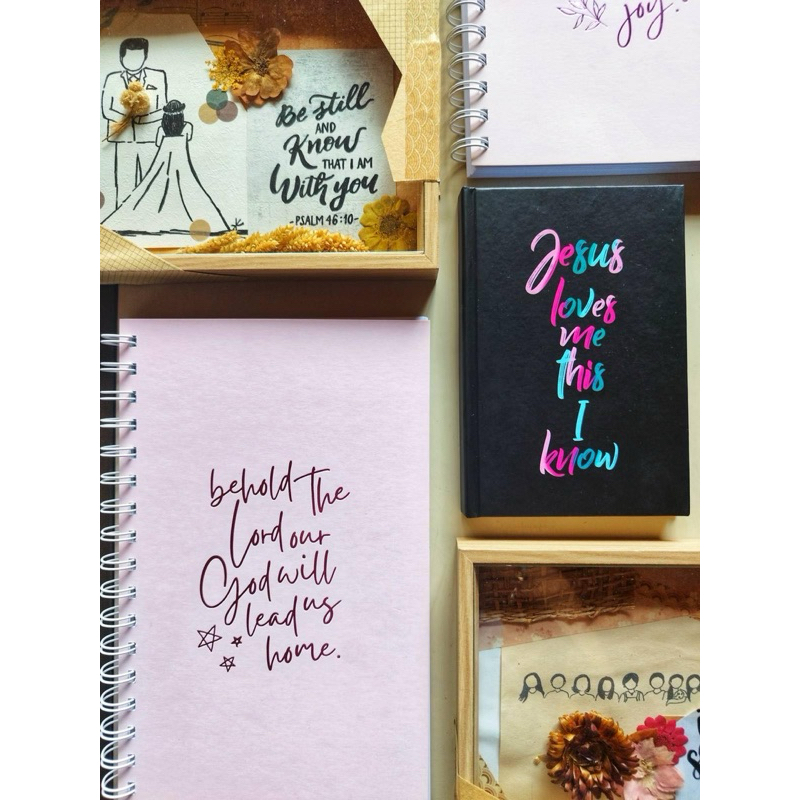 Be still
AND
Know
THAT I AM
With you
-PSALM 46:10-
joy.
Jesus
loves
me
this
I
know
behold the
Lord our
God will
lead us
home.